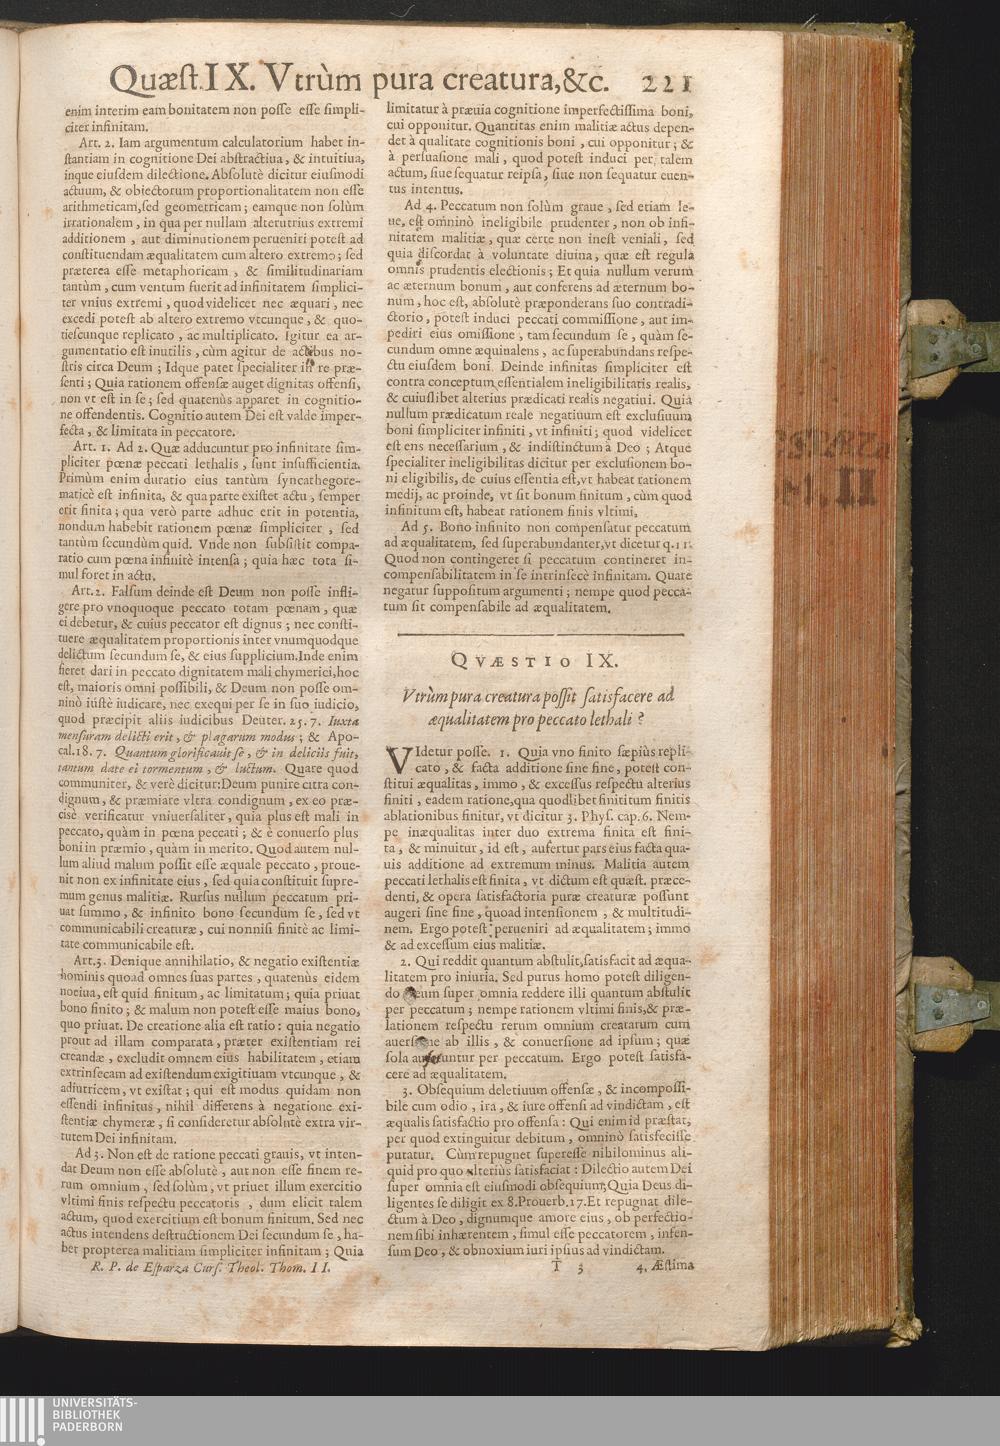 Quæst. IX. Vtrùm pura creatura, &c. 221
enim interim eam bonitatem non posse esse simpli-
citer infinitam.
Art. 2. Iam argumentum calculatorium habet in-
stantiam in cognitione Dei abstractiua, & intuitiua,
inque eiusdem dilectione. Absolutè dicitur eiusmodi
actuum, & obiectorum proportionalitatem non esse
arithmeticam, sed geometricam; eamque non solùm
irrationalem, in qua per nullam alterutrius extremi
additionem, aut diminutionem perueniri potest ad
constituendam æqualitatem cum altero extremo; sed
præterea esse metaphoricam, & similitudinariam
tantùm, cum ventum fuerit ad infinitatem simplici-
ter vnius extremi, quod videlicet nec æquari, nec
excedi potest ab altero extremo vtcunque, & quo-
tiescunque replicato, ac multiplicato. Igitur ea ar-
gumentatio est inutilis, cùm agitur de actibus no-
stris circa Deum; Idque patet specialiter in re præ-
senti; Quia rationem offensæ auget dignitas offensi,
non vt est in se; sed quatenùs apparet in cognitio-
ne offendentis. Cognitio autem Dei est valde imper-
fecta, & limitata in peccatore.
Art. 1. Ad 2. Quæ adducuntur pro infinitate sim-
pliciter pœnæ peccati lethalis, sunt insufficientia.
Primùm enim duratio eius tantùm syncathegore-
maticè est infinita, & qua parte existet actu, semper
erit finita; qua verò parte adhuc erit in potentia,
nondum habebit rationem pœnæ simpliciter, sed
tantùm secundùm quid. Vnde non subsistit compa-
ratio cum pœna infinitè intensa; quia hæc tota si-
mul foret in actu.
Art. 2. Falsum deinde est Deum non posse infli-
gere pro vnoquoque peccato totam pœnam, quæ
ei debetur, & cuius peccator est dignus; nec consti-
tuere æqualitatem proportionis inter vnumquodque
delictum secundum se, & eius supplicium. Inde enim
fieret dari in peccato dignitatem mali chymerici, hoc
est, maioris omni possibili, & Deum non posse om-
ninò iústè iudicare, nec exequi per se in suo iudicio,
quod præcipit aliis iudicibus Deuter. 25. 7. Iuxta
mensuram delicti erit, & plagarum modus; & Apo-
cal. 18. 7. Quantum glorificauit se, & in deliciis fuit,
tantum date ei tormentum, & luctum. Quare quod
communiter, & verè dicitur: Deum punire citra con-
dignum, & præmiare vltra condignum, ex eo præ-
cisè verificatur vniuersaliter, quia plus est mali in
peccato, quàm in pœna peccati; & è conuerso plus
boni in præmio, quàm in merito. Quod autem nul-
lum aliud malum possit esse æquale peccato, proue-
nit non ex infinitate eius, sed quia constituit supre-
mum genus malitiæ. Rursus nullum peccatum pri-
uat summo, & infinito bono secundum se, sed vt
communicabili creaturæ, cui nonnisi finitè ac limi-
tate communicabile est.
Art. 3. Denique annihilatio, & negatio existentiæ
hominis quoad omnes suas partes, quatenùs eidem
nociua, est quid finitum, ac limitatum; quia priuat
bono finito; & malum non potest esse maius bono,
quo priuat. De creatione alia est ratio: quia negatio
prout ad illam comparata, præter existentiam rei
creandæ, excludit omnem eius habilitatem, etiam
extrinsecam ad existendum exigitiuam vtcunque, &
adiutricem, vt existat; qui est modus quidam non
essendi infinitus, nihil differens à negatione exi-
stentiæ chymeræ, si consideretur absolutè extra vir-
tutem Dei infinitam.
Ad 3. Non est de ratione peccati grauis, vt inten-
dat Deum non esse absolutè, aut non esse finem re-
rum omnium, sed solùm, vt priuet illum exercitio
vltimi finis respectu peccatoris, dum elicit talem
actum, quod exercitium est bonum finitum. Sed nec
actus intendens destructionem Dei secundum se, ha-
bet propterea malitiam simpliciter infinitam; Quia
R. P. de Esparza Curs. Theol. Thom. II.
limitatur à præuia cognitione imperfectissima boni,
cui opponitur. Quantitas enim malitiæ actus depen-
det à qualitate cognitionis boni, cui opponitur; &
à persuasione mali, quod potest induci per talem
actum, siue sequatur reipsa, siue non sequatur euen-
tus intentus.
Ad 4. Peccatum non solùm graue, sed etiam le-
ue, est omninò ineligibile prudenter, non ob infi-
nitatem malitiæ, quæ certe non inest veniali, sed
quia discordat à voluntate diuina, quæ est regula
omnis prudentis electionis; Et quia nullum verum
ac æternum bonum, aut conferens ad æternum bo-
num, hoc est, absolutè præponderans suo contradi-
ctorio, potest induci peccati commissione, aut im-
pediri eius omissione, tam secundum se, quàm se-
cundum omne æquiualens, ac superabundans respe-
ctu eiusdem boni. Deinde infinitas simpliciter est
contra conceptum essentialem ineligibilitatis realis,
& cuiuslibet alterius prædicati realis negatiui. Quia
nullum prædicatum reale negatiuum est exclusiuum
boni simpliciter infiniti, vt infiniti; quod videlicet
est ens necessarium, & indistinctum à Deo; Atque
specialiter ineligibilitas dicitur per exclusionem bo-
ni eligibilis, de cuius essentia est, vt habeat rationem
medij, ac proinde, vt sit bonum finitum, cùm quod
infinitum est, habeat rationem finis vltimi.
Ad 5. Bono infinito non compensatur peccatum
ad æqualitatem, sed superabundanter, vt dicetur q. 11.
Quod non contingeret si peccatum contineret in-
compensabilitatem in se intrinsecè infinitam. Quare
negatur suppositum argumenti; nempe quod pecca-
tum sit compensabile ad æqualitatem.
QVÆSTIO IX.
Vtrùm pura creatura possit satisfacere ad
æqualitatem pro peccato lethali?
VIdetur posse. 1. Quia vno finito sæpiùs repli-
cato, & facta additione sine fine, potest con-
stitui æqualitas, immo, & excessus respectu alterius
finiti, eadem ratione, qua quodlibet finitum finitis
ablationibus finitur, vt dicitur 3. Phys. cap. 6. Nem-
pe inæqualitas inter duo extrema finita est fini-
ta, & minuitur, id est, aufertur pars eius facta qua-
uis additione ad extremum minus. Malitia autem
peccati lethalis est finita, vt dictum est quæst. præce-
denti, & opera satisfactoria puræ creaturæ possunt
augeri sine fine, quoad intensionem, & multitudi-
nem. Ergo potest perueniri ad æqualitatem; immo
& ad excessum eius malitiæ.
2. Qui reddit quantum abstulit, satisfacit ad æqua-
litatem pro iniuria. Sed purus homo potest diligen-
do Deum super omnia reddere illi quantum abstulit
per peccatum; nempe rationem vltimi finis, & præ-
lationem respectu rerum omnium creatarum cum
auersione ab illis, & conuersione ad ipsum; quæ
sola auferuntur per peccatum. Ergo potest satisfa-
cere ad æqualitatem.
3. Obsequium deletiuum offensæ, & incompossi-
bile cum odio, ira, & iure offensi ad vindictam, est
æqualis satisfactio pro offensa: Qui enim id præstat,
per quod extinguitur debitum, omninò satisfecisse
putatur. Cùm repugnet superesse nihilominus ali-
quid pro quo vlteriùs satisfaciat: Dilectio autem Dei
super omnia est eiusmodi obsequium; Quia Deus di-
ligentes se diligit ex 8. Prouerb. 17. Et repugnat dile-
ctum à Deo, dignumque amore eius, ob perfectio-
nem sibi inhærentem, simul esse peccatorem, infen-
sum Deo, & obnoxium iuri ipsius ad vindictam.
T 3 4. Æstima
UNIVERSITÄTS-
BIBLIOTHEK
PADERBORN